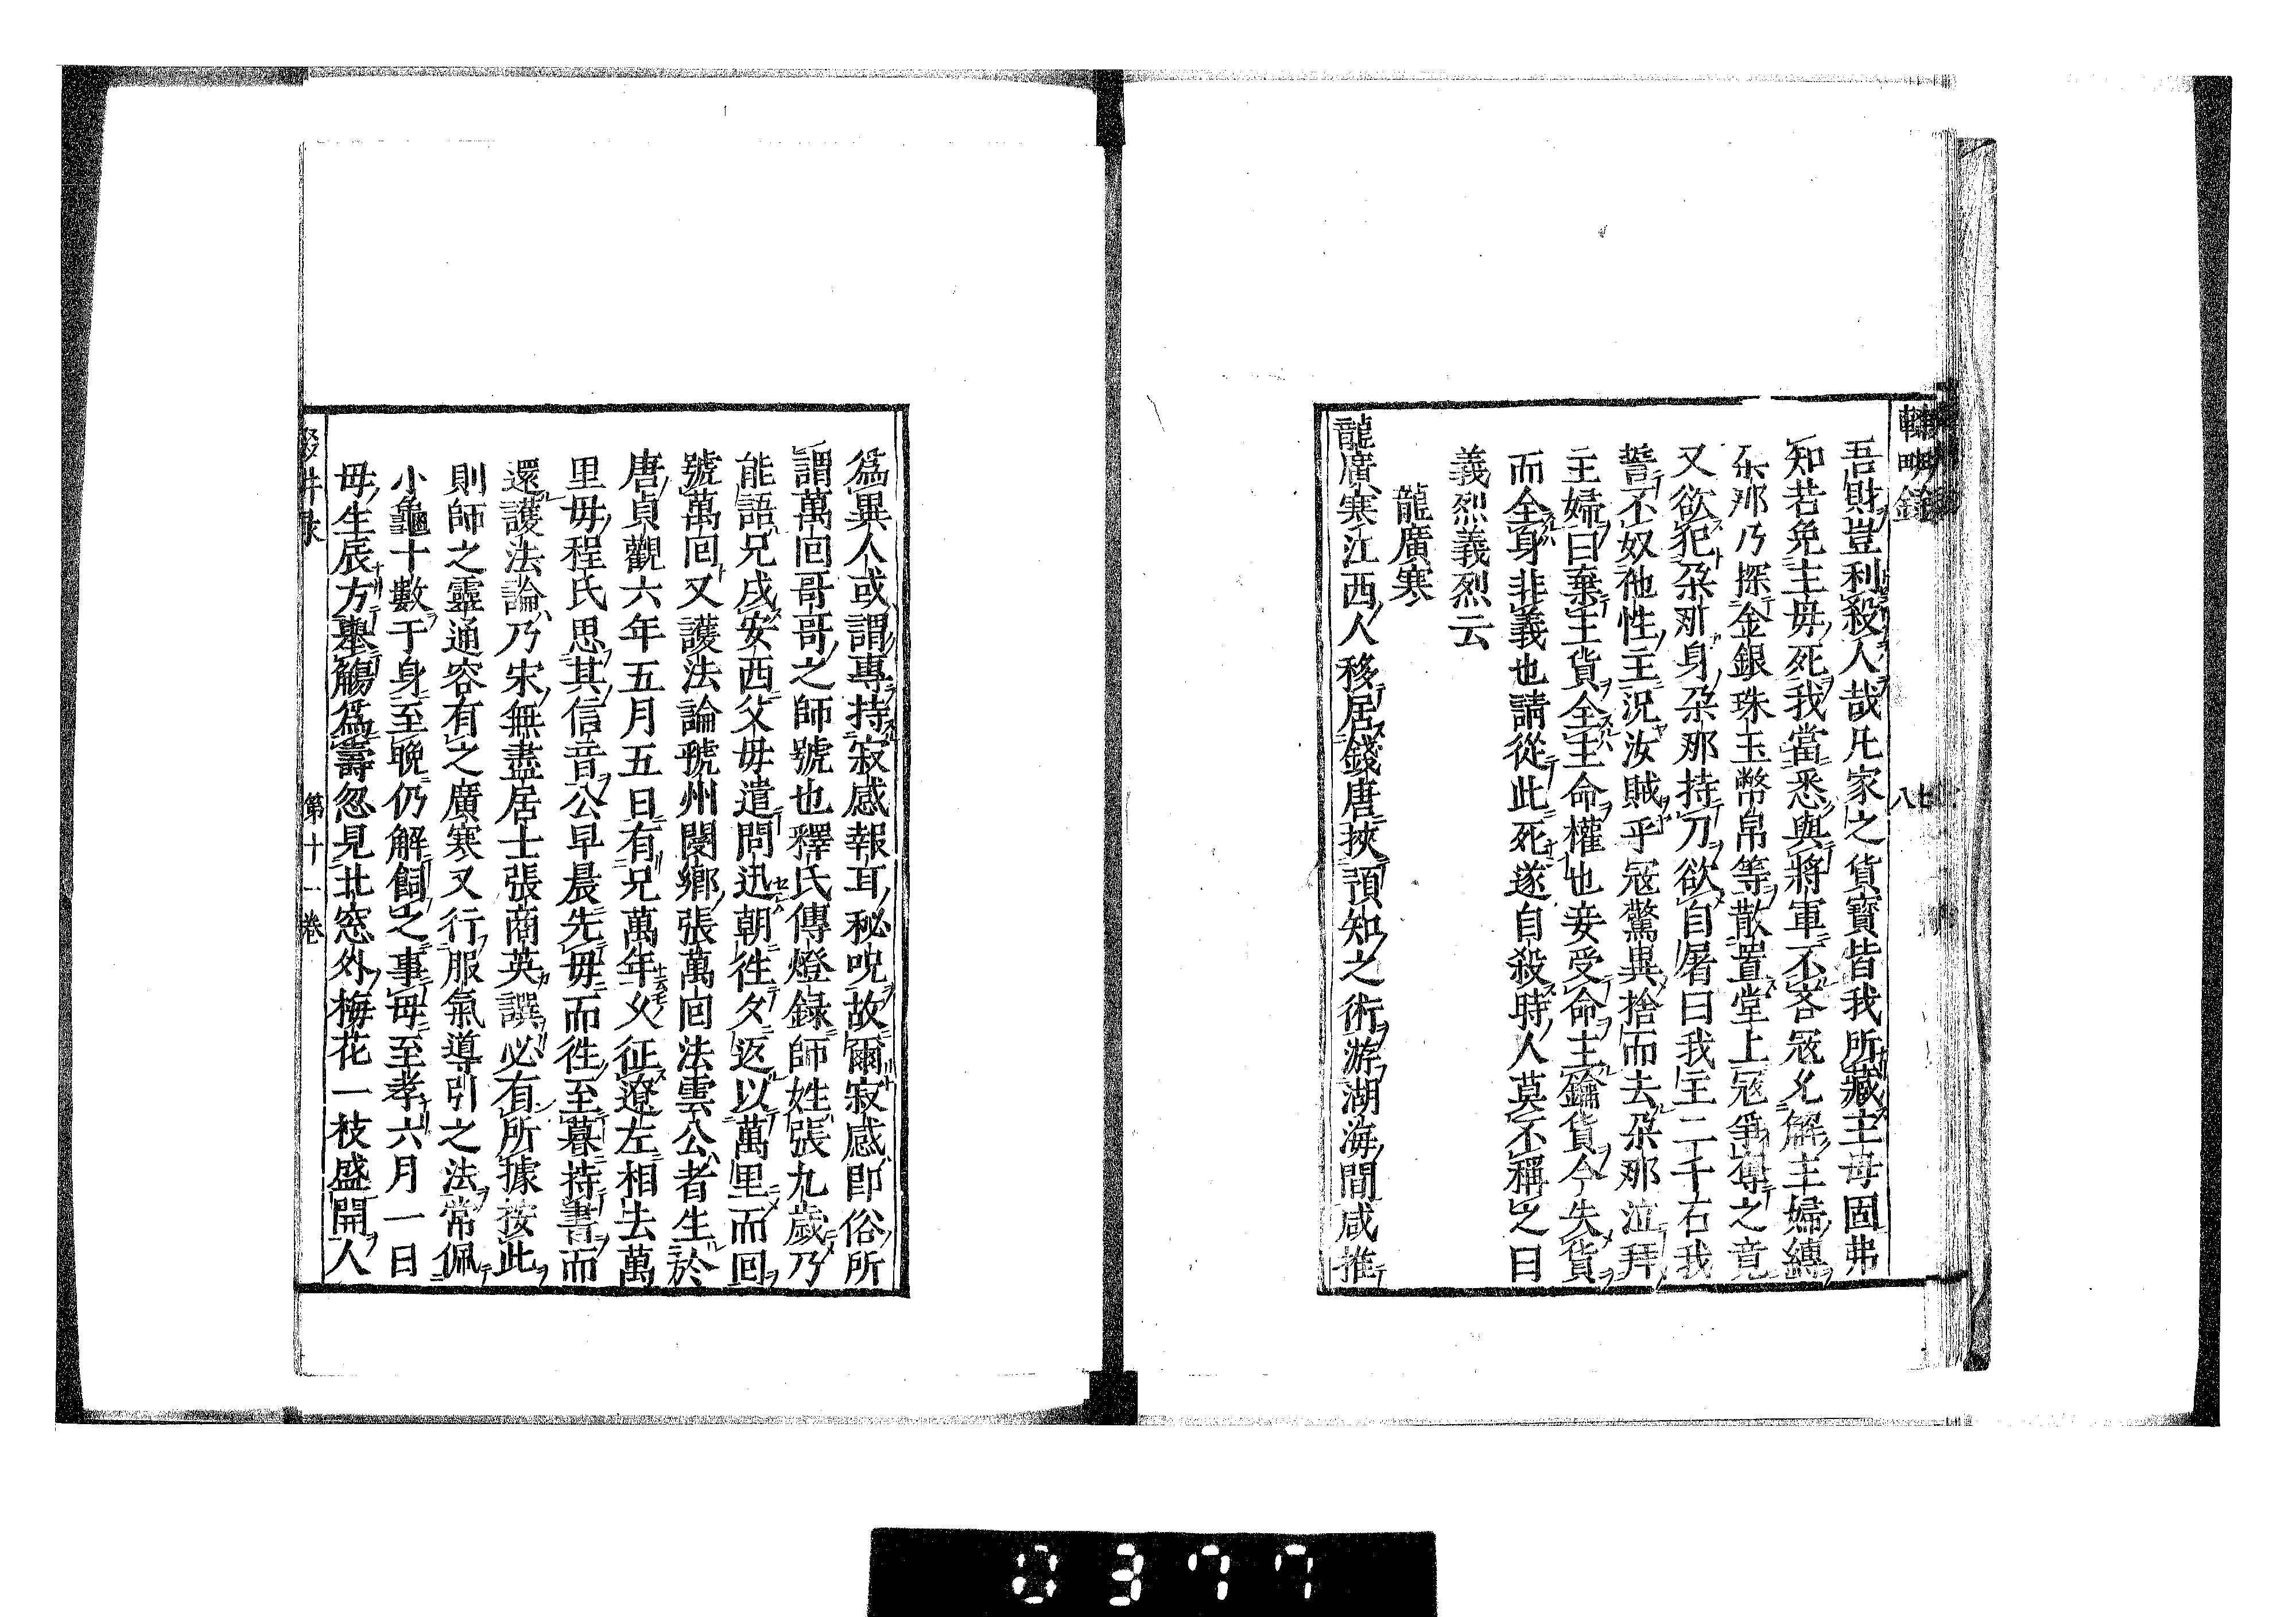 輟畊錄
八
吾財豈利殺人哉凡家之貨寶皆我所藏主母固弗
知若免主母死我當悉與將軍不吝冦乃解主婦縛
朶那乃探金銀珠玉幣帛等散置堂上冦爭奪之竟
又欲犯朶那身朶那持刀欲自屠曰我主二千石我
誓不奴他性主況汝賊乎冦驚異捨而去朶那泣拜
主婦曰棄主貨全主命權也妾受命主鑰貨今失貨
而全身非義也請從此死遂自殺時人莫不稱之曰
義烈義烈云
龍廣寒
龍廣寒江西人移居錢唐挾預知之術游湖海間咸推
爲異人或謂專持寂感報耳秘呪故爾寂感卽俗所
謂萬囘哥哥之師號也釋氏傳燈録師姓張九歲乃
能語兄戌安西父母遣問迅朝徃夕返以萬里而囘
號萬囘又護法論虢州閿鄉張萬囘法雲公者生於
唐貞觀六年五月五日有兄萬年乆征遼左相去萬
里母程氏思其信音公早晨先母而徃至暮持書而
還護法論乃宋無盡居士張商英譔必有所據按此
則師之靈通容有之廣寒又行服氣導引之法常佩
小龜十數于身至晚仍解飼之事母至孝六月一日
母生辰方舉觴爲壽忽見北窓外梅花一枝盛開人
第十一卷